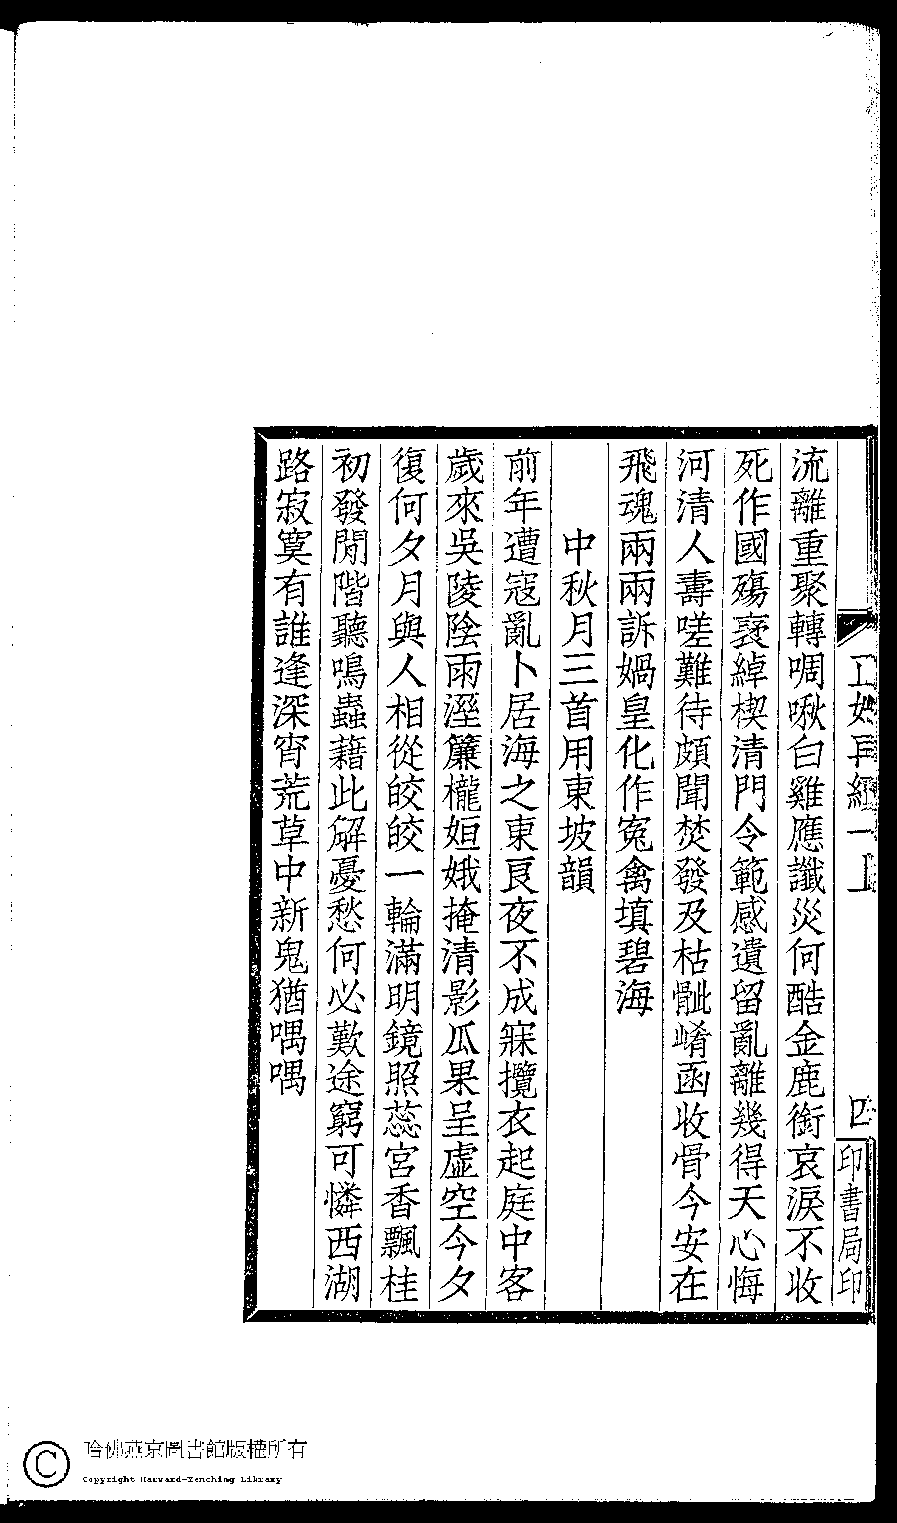 流離重聚轉啁啾白雞應讖災何酷金鹿銜哀淚不收
死作國殤袤綽楔清門令範感遺留亂離幾得天心悔
河清人壽嗟難待頗聞焚發及枯骴崤函收骨今安在
飛魂兩兩訴媧皇化作寃禽填碧海
中秋月三首用東坡韻
前年遭寇亂卜居海之東良夜不成寐攬衣起庭中客
歲來吳陵陰雨溼簾櫳姮娥掩清影瓜果呈虛空今夕
復何夕月與人相從皎皎一輪滿明鏡照蕊宮香飄桂
初發閒階聽鳴蟲藉此解憂愁何必歎途窮可憐西湖
路寂寞有誰逢深宵荒草中新鬼猶喁喁
一上
四
印書局印
哈佛燕京圖書館版權所有
Copyright Harvard-Yenching Library